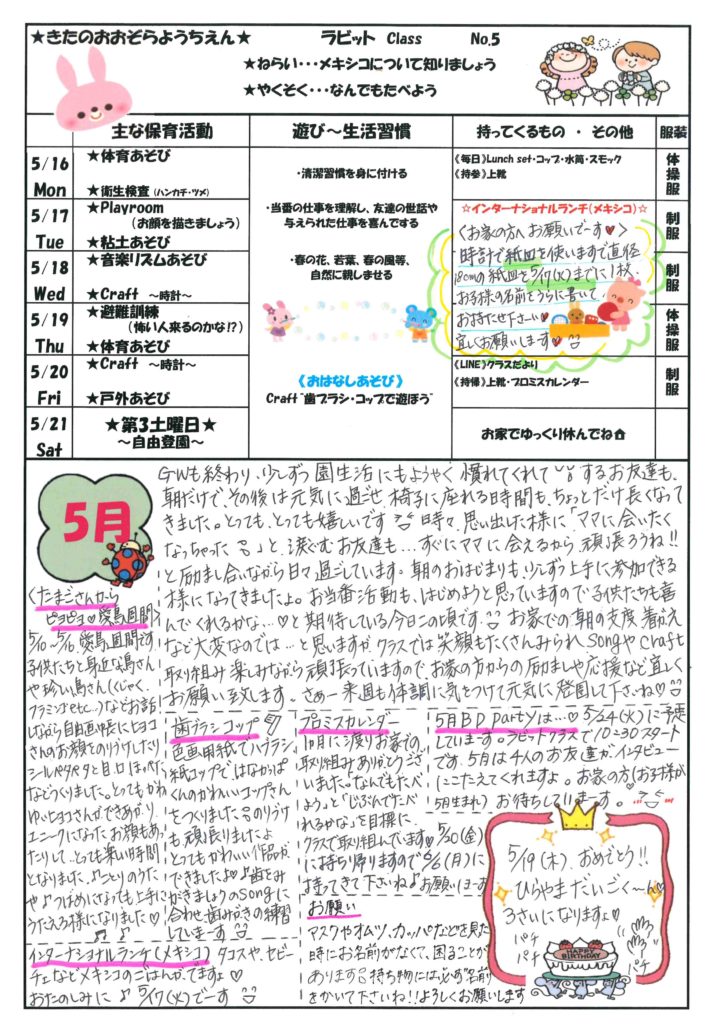 ★きたのおおぞらようちえん★ ラビット Class No.5
★ねらい・・・メキシコについて知りましょう
★やくそく・・・なんでもたべよう
主な保育活動 遊び～生活習慣 持ってくるもの ・ その他 服装
5/16 Mon
★体育あそび
★衛生検査(ハンカチ・ツメ)
5/17 Tue
★Playroom
(お顔を描きましょう)
★粘土あそび
5/18 Wed
★音楽リズムあそび
★Craft ～時計～
5/19 Thu
★避難訓練
(怖い人来るのかな!?)
★体育あそび
5/20 Fri
★Craft ～時計～
★戸外あそび
5/21 Sat
★第3土曜日★
～自由登園～
・清潔習慣を身に付ける
・当番の仕事を理解し、友達の世話や
与えられた仕事を喜んでする
・春の花、若葉、春の風等、
自然に親しませる
《おはなしあそび》
Craft“歯ブラシ・コップで遊ぼう”
《毎日》Lunch set・コップ・水筒・スモック
《持参》上靴
☆インターナショナルランチ(メキシコ)☆
〈お家の方へ お願いでーす♥〉
時計で紙皿を使いますで直径
18cmの紙皿を5/17(火)までに1枚、
お子様の名前をうらに書いて
お持たせ下さーい♥
宜しくお願いします♥
《LINE》クラスだより
《持帰》上靴・プロミスカレンダー
お家でゆっくり休んでね
体操服
制服
制服
体操服
制服
5月
GWも終わり、少しずつ園生活にもようやく慣れてくれて するお友達も、
朝だけで、その後は元気に過ごせ 椅子に座れる時間も、ちょっとだけ長くなって
きました。とっても、とっても嬉しいです 時々、思い出した様に「ママに会いたく
なっちゃった」と、涙ぐむお友達も…すぐにママに会えるから頑張ろうね!!
と励まし合いながら日々過ごしています。朝のおはじまりも、少しずつ上手に参加できる
様になってきましたよ。お当番活動も、はじめようと思っていますので子供たちも喜
んでくれるかな…♡と期待している今日この頃です。お家での朝の支度、着がえ
など大変なのでは…と思いますが、クラスでは笑顔もたくさんみられ SongやCraft
取り組み楽しみながら頑張っていますので、お家の方からの励ましや応援など宜しく
お願い致します。さあー来週も体調に気をつけて元気に登園して下さいね♡
〈たまごさんから
ピヨピヨ♥愛鳥週間〉
5/10～5/16 愛鳥週間です
子供たちと身近な鳥さん
や珍しい鳥さん(くじゃく、
フラミンゴetc…)などお話
しながら自由画帳にヒヨコ
さんのお顔をのりづけしたり
シールペタペタと目、口、ほっぺた
などつくりました。とってもかわ
ゆいヒヨコさんができあがり、
ユニークになったお顔もあっ
たりして…とっても楽しい時間
となりました。♪ことりのうた
や♪つばめになっても上手に
うたえる様になりました♡
歯ブラシコップ
色画用紙でハブラシ、
紙コップで、はなかっぱ
くんのかわいいコップさん
をつくりました のりづけ
も頑張りましたよ
とってもかわいい作品が
できましたよ♪♪歯をみ
がきましょうのSongに
合わせ歯みがきの練習
していまーす
プロミスカレンダー
1ヵ月に渡りお家での
取り組みありがとうござ
いました。「なんでもたべ
よう。」と「じぶんでたべ
れるかな」を目標に、
クラスで取り組んでいます♥5/20(金)
に持ち帰りますので6/6(月)に
持ってきて下さいね♪お願いしまーす
5月 BD partyは…♡5/24(火)に予定
しています。ラビットクラスで10:30スタート
です。5月は4人のお友達がインタビュー
にこたえてくれますよ。お家の方(お子様が
5月生まれ)お待ちしていまーす。
お願い
マスクやオムツ、カッパなどを見た
時にお名前がなくて、困ることが
あります 持ち物には、必ず名前
をかいて下さいね!!よろしくお願いします
インターナショナルランチ(メキシコ) タコスや、セビー
チェなどメキシコのごはんがでますよ♡
おたのしみに♪5/17(火)でーす
5/19(木)、おめでとう!!
ひらやまだいごくーん♡
3さいになりますよ♥
パチ
パチ
パチ
パチ
HAPPY BIRTHDAY